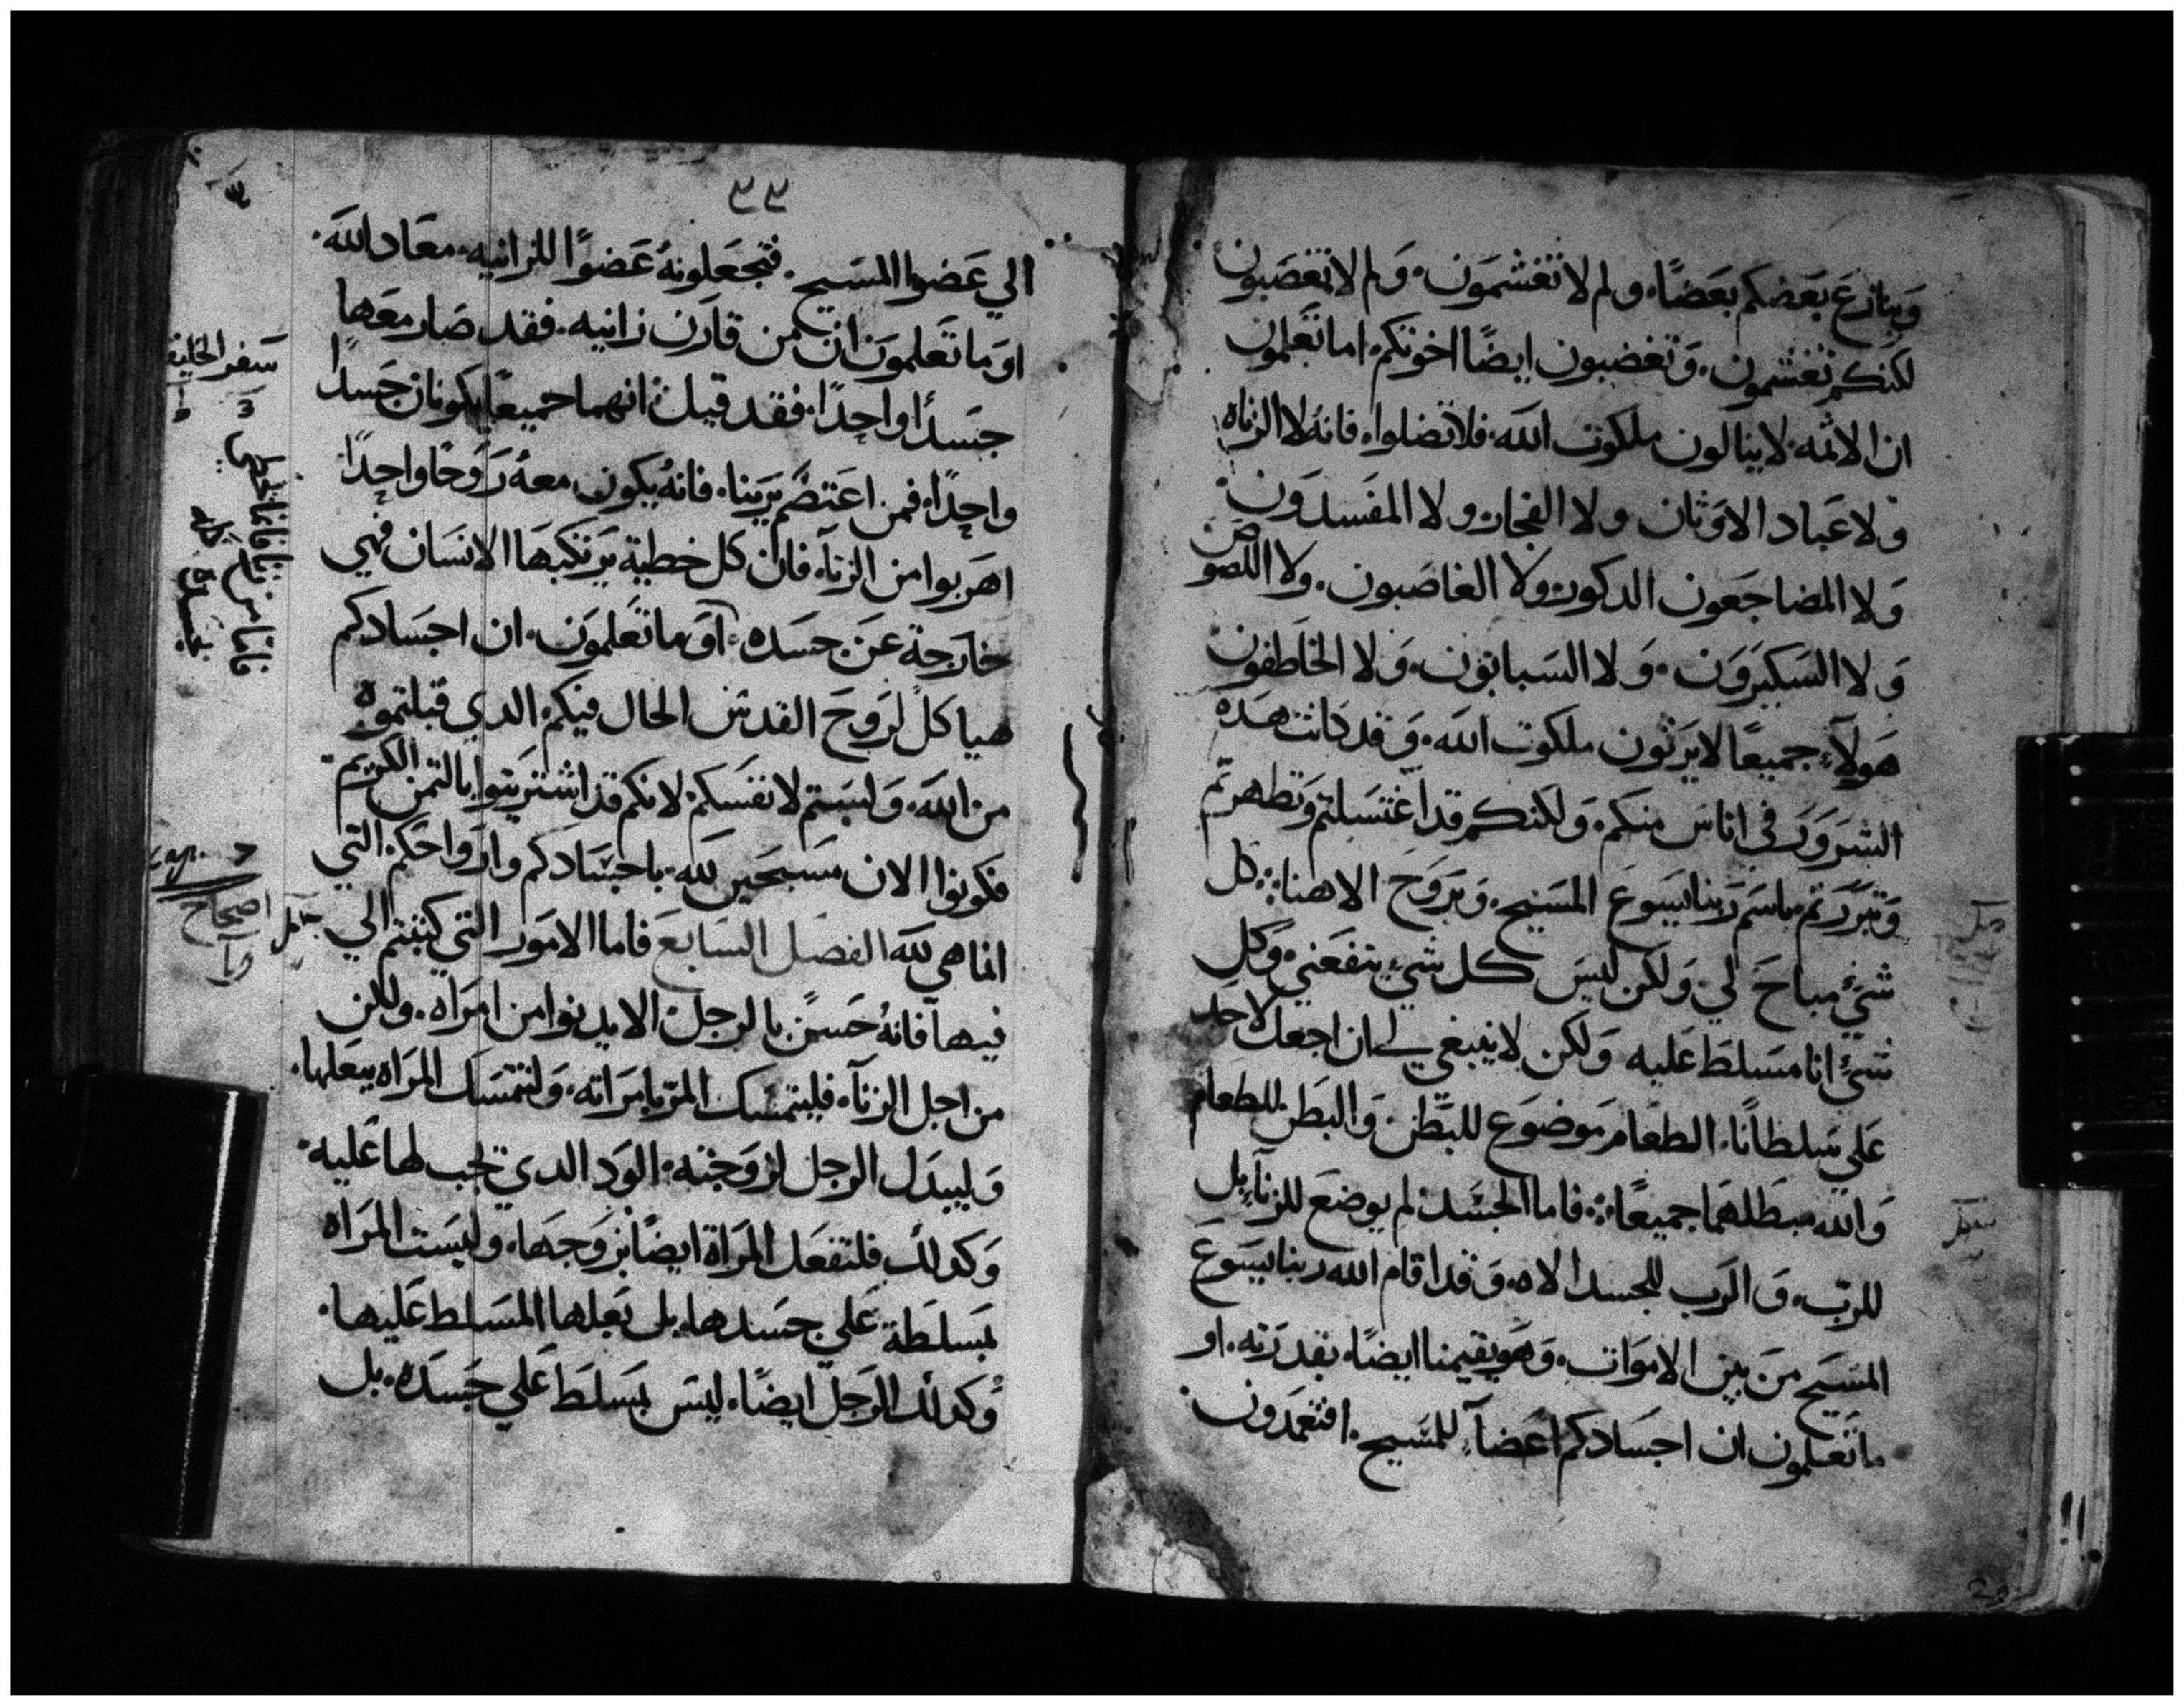 وينازع بعضكم بعضًا، ولم لا تغشمون. ولم لا تغصبون
لكنكم تغشمون. وتغضبون ايضًا اخوتكم. اما تعلمون
ان الاثمه. لا ينالون ملكوت الله. فلا تضلوا. فانه لا الزناه
ولا عباد الاوثان ولا الفجار ولا المفسدون
ولا المضاجعون الدكور ولا الغاصبون. ولا اللصوص
ولا السكيرون. ولا السبابون. ولا الخاطفون
هولآء جميعًا لا يرثون ملكوت الله. وقد كانت هده
الشرور في اناس منكم. ولكنكم قد اغتسلتم وتطهرتم
وتبررتم باسم ربنا يسوع المسيح. وبروح الاهنا: كل
شيءٍ مباح لي. ولكن ليس كل شيءٍ ينفعني. وكل
شيءٍ انا مسلط عليه ولكن لا ينبغي لي ان اجعل لاحد
علي سلطانًا. الطعام موضوع للبطن. والبطن للطعام
والله مبطلهما جميعًا: فاما الجسد لم يوضع للزنآء بل
للرب. والرب للجسد الاه. وقد اقام الله ربنا يسوع
المسيح من بين الاموات. وهو يقيمنا ايضًا، بقدرته. او
ما تعلمون ان اجسادكم اعضآء للمسيح. افتعمدون
٣٣
الي عضوا المسيح. فتجعلونهُ عضوًا للزانيه. معاد الله.
او ما تعلمون ان من قارن زانيه. فقد صار معها
جسدًا واحدًا. فقد قيل انهما جميعًا يكونان جسدًا
واحدًا، فمن اعتصم بربنا. فانه يكون معهُ روحًا واحدًا
اهربوا من الزنآء فان كل خطية يرتكبها الانسان فهي
خارجة عن جسده. او ما تعلمون. ان اجسادكم
هياكل لروح القدس الحال فيكم. الدي قبلتموه
من الله. ولستم لانفسكم. لانكم قد اشتريتوا بالتمن الكريم
فكونوا الان مسبحين لله. باجسادكم وارواحكم. التي
انما هي لله الفصل السابع فاما الامور التي كتبتم الي
فيها فانهُ حسن بالرجل الا يدنوا من امراه. ولكن
من اجل الزنآء. فليتمسك المر بامراته. ولتتمسك المراه ببعلها.
وليبدل الرجل لزوجته. الود الدي يجب لها عليه.
وكدلك فلتفعل المراة ايضًا بزوجها. وليست المراه
بمسلطة علي جسدها. بل بعلها المسلط عليها.
وكدلك الرجل ايضًا. ليس بمسلط علي جسده. بل
سفر الخليقه
اصحاح